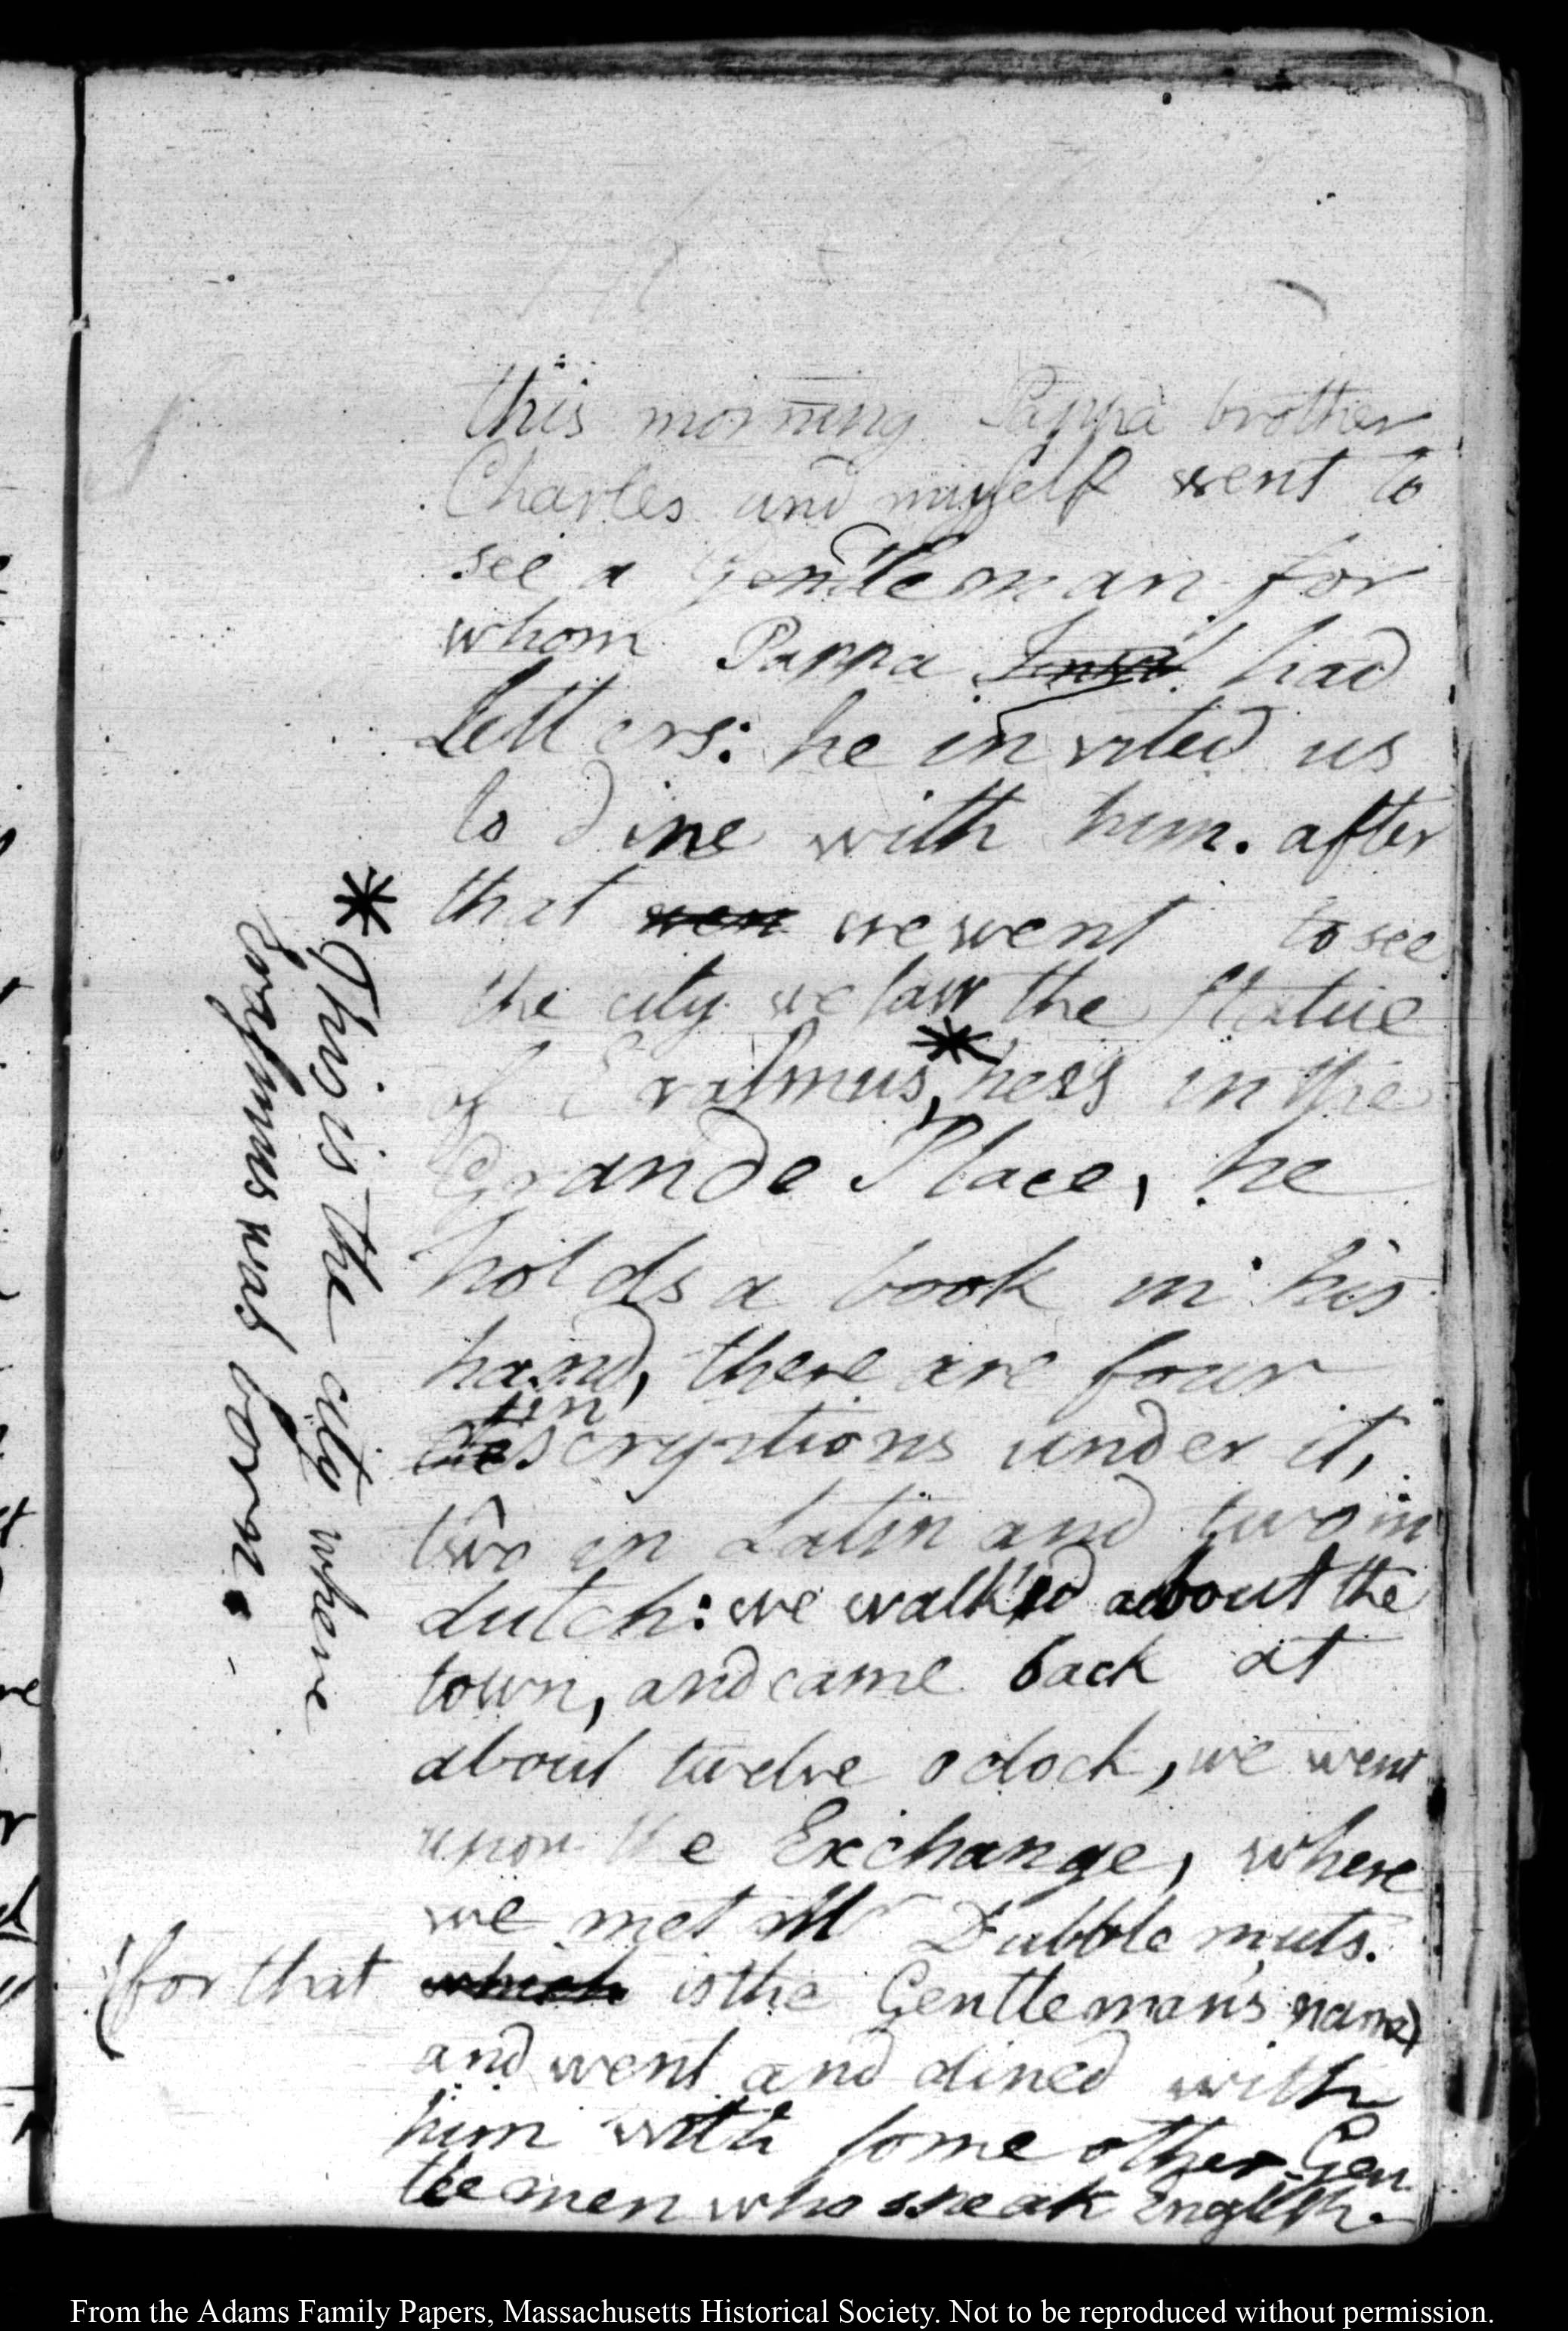 this morning Pappa brother
Charles and myself went to
see a Gentleman for
whom Pappa had
Letters: he invited us
to dine with him. after
that wen we went to see
the city we saw the Statue
of Erasmus,* hess in the
Grande Place, he
holds a book in his
hand, there are four
in
descryptions under it,
two in Latin and two in
dutch: we walk'd about the
town, and came back at
about twelve o clock, we went
upon the Exchange, where
we met Mr Dubble muts.
(for that which is the Gentleman's name)
and went and dined with
him with some other Gen
tlemen who speak English.
* This is the city where
Erasmus was born.
From the Adams Family Papers, Massachusetts Historical Society. Not to be reproduced without permission.